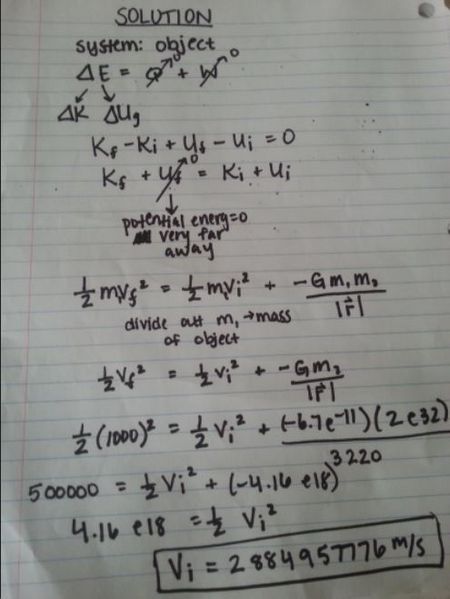 SOLUTION
system: object
ΔE = Q↗0 + W↗0
ΔK ΔUg
Kf - Ki + Uf - Ui = 0
Kf + Uf↗0 = Ki + Ui
potential energ=0
very far
away
1/2 m1Vf² = 1/2 m1Vi² + -Gm1m2/|r⃗|
divide out m1 → mass
of object
1/2 Vf² = 1/2 Vi² + -Gm2/|r⃗|
1/2 (1000)² = 1/2 Vi² + (-6.7e⁻¹¹)(2e32)/3220
500000 = 1/2 Vi² + (-4.16 e18)
4.16 e18 = 1/2 Vi²
Vi = 2884957776 m/s